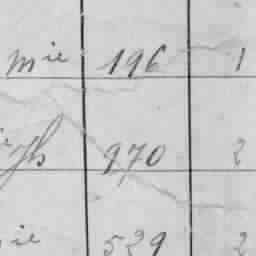 mie 196 1
970 2
ie 529 2